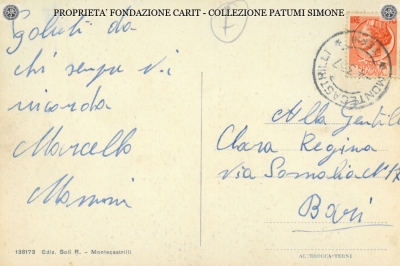 PROPRIETA' FONDAZIONE CARIT - COLLEZIONE PATUMI SIMONE
Saluti da
chi sempre vi
ricorda
Marcello
Alla Gentile
Clara Regina
via Somalia N° 17
Bari
138173 Ediz. Soli R. - Montecastrilli
ALTEROCCA-TERNI